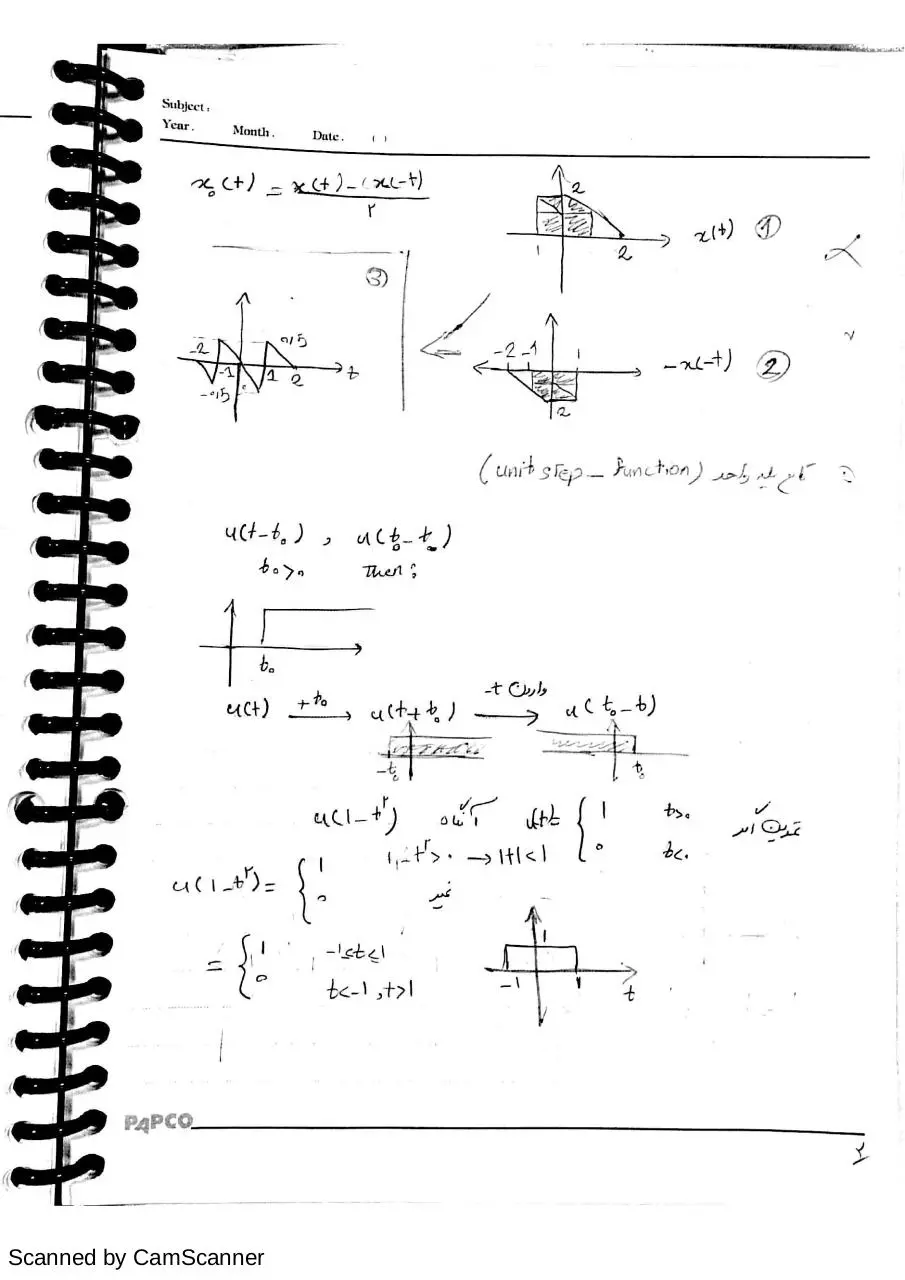 Subject:
Year. Month. Date. ( )
x₀(t) = x(t) - (x(-t) / ۲
2
1 2
x(t) ①
③
-2 0/5
-1 1 2 t
-0/5
-2 -1 1
-x(-t) ②
2
تابع پله واحد (unit step - function)
u(t-t₀) , u(t₀-t)
t₀>۰ Then :
t₀
u(t) +t₀ → u(t+t₀) → u(t₀-t)
-t₀ t₀
u(1-t²) آنگاه u(t)= { 1 t>۰
۰ t<۰
u(1-t²) = { 1 1-t²>۰ → |t|<1
۰
= { 1 -1≤t≤1
۰ t<-1 , t>1
1
-1 1 t
PAPCO
۲
Scanned by CamScanner